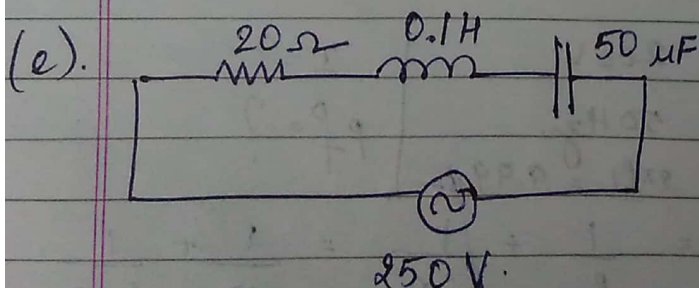 (e).
20 Ω 0.1H 50 μF
250 V.